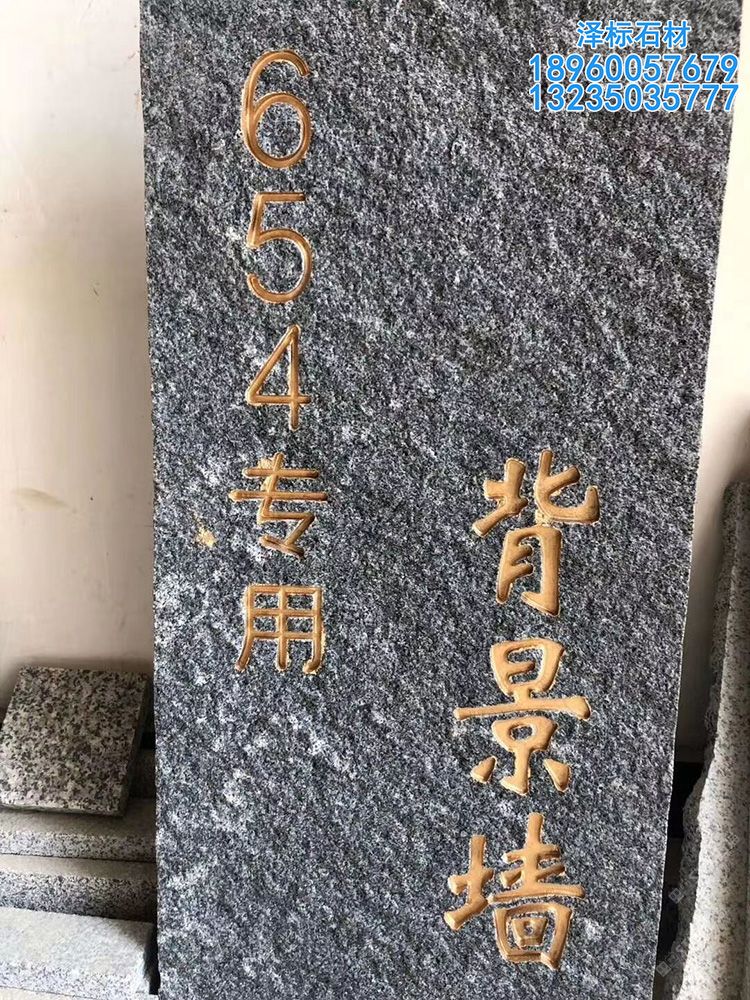 泽标石材
18960057679
13235035777
654专用
背景墙